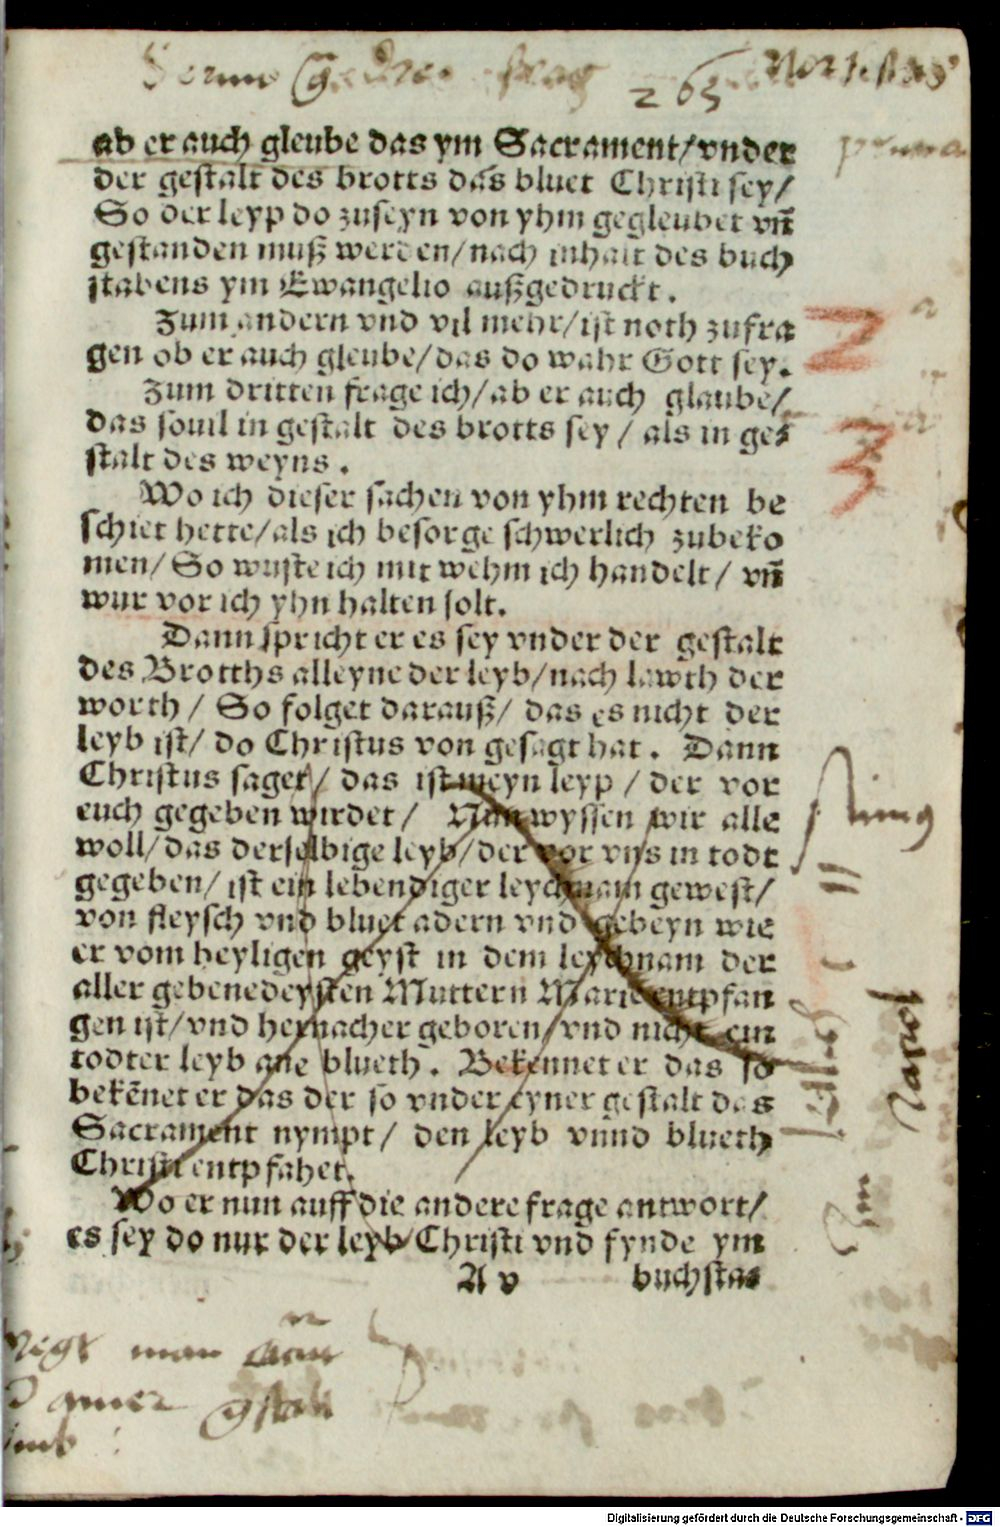 265
ab er auch gleube das ym Sacrament/ vnder
der gestalt des brotts das bluet Christi sey/
So der leyp do zuseyn von yhm gegleubet vn̄
gestanden muß werden/ nach inhalt des buch
stabens ym Ewangelio außgedruckt.
Zum andern vnd vil mehr/ ist noth zufra
gen ob er auch gleube/ das do wahr Gott sey.
2
Zum dritten frage ich/ ab er auch glaube/
das souil in gestalt des brotts sey/ als in ge⸗
3
stalt des weyns.
Wo ich dieser sachen von yhm rechten be
schiet hette/ als ich besorge schwerlich zubeko
men/ So wuste ich mit wehm ich handelt/ vn̄
wur vor ich yhn halten solt.
Dann spricht er es sey vnder der gestalt
des Brotths alleyne der leyb/ nach lawth der
worth/ So folget darauß/ das es nicht der
leyb ist/ do Christus von gesagt hat. Dann
Christus saget/ das ist meyn leyp/ der vor
euch gegeben wirdet/ Nun wyssen wir alle
woll/ das derselbige leyb/ der vor vns in todt
gegeben/ ist ein lebendiger leychnam gewest/
von fleysch vnd bluet adern vnd gebeyn wie
er vom heyligen geyst in dem leychnam der
aller gebenedeysten Muttern Marie entpfan
gen ist/ vnd hernacher geboren/ vnd nicht ein
todter leyb ane blueth. Bekennet er das so
bekēnet er das der so vnder eyner gestalt das
Sacrament nympt/ den leyb vnnd blueth
Christi entpfahet.
Wo er nun auff die andere frage antwort/
es sey do nur der leyb Christi vnd fynde ym
A v buchsta⸗
man
Digitalisierung gefördert durch die Deutsche Forschungsgemeinschaft - DFG